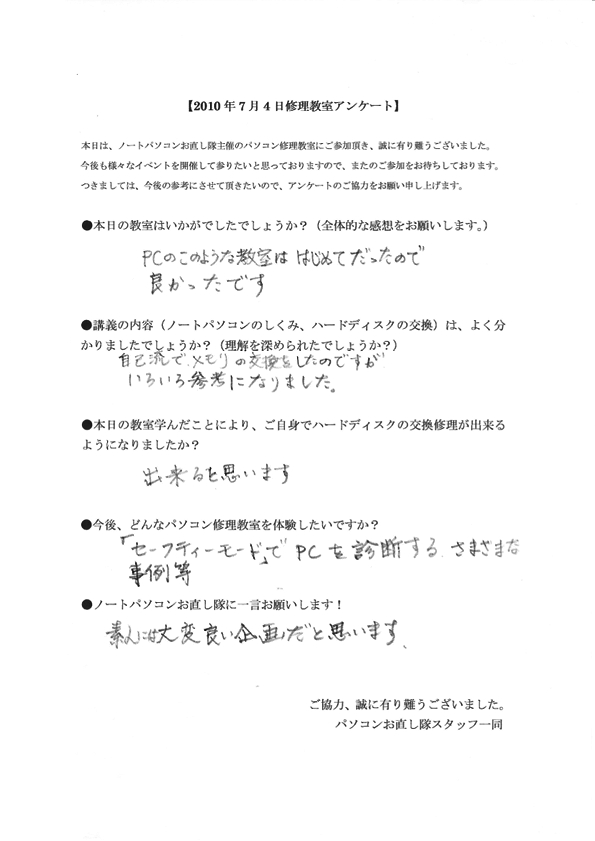 【2010 年 7 月 4 日修理教室アンケート】
本日は、ノートパソコンお直し隊主催のパソコン修理教室にご参加頂き、誠に有り難うございました。
今後も様々なイベントを開催して参りたいと思っておりますので、またのご参加をお待ちしております。
つきましては、今後の参考にさせて頂きたいので、アンケートのご協力をお願い申し上げます。
●本日の教室はいかがでしたでしょうか？（全体的な感想をお願いします。）
PCのこのような教室は はじめてだったので
良かったです
●講義の内容（ノートパソコンのしくみ、ハードディスクの交換）は、よく分
かりましたでしょうか？（理解を深められたでしょうか？）
自己流で、メモリの交換をしたのですが
いろいろ参考になりました。
●本日の教室学んだことにより、ご自身でハードディスクの交換修理が出来る
ようになりましたか？
出来ると思います
●今後、どんなパソコン修理教室を体験したいですか？
「セーフティーモード」で PCを診断する さまざまな
事例等
●ノートパソコンお直し隊に一言お願いします！
素人には大変良い企画だと思います、
ご協力、誠に有り難うございました。
パソコンお直し隊スタッフ一同